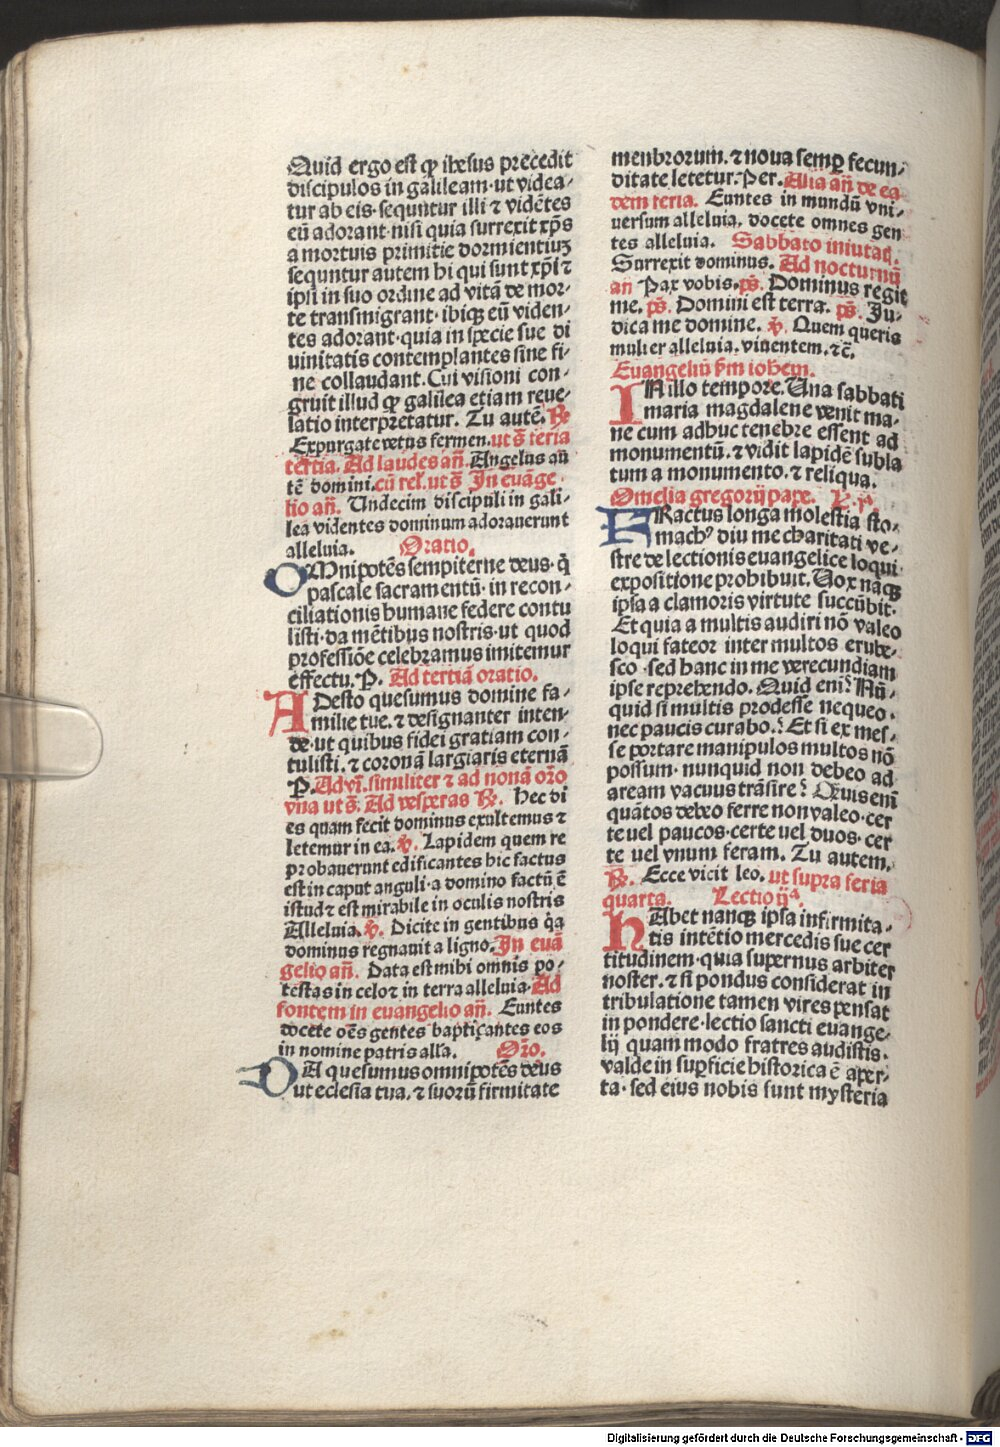 Quid ergo est ꝙ ihesus precedit
discipulos in galileam·ut videa⸗
tur ab eis·sequntur illi ⁊ vidētes
eū adorant·nisi quia surrexit xp̄s
a mortuis primitie dormientiuꝫ
sequntur autem hi qui sunt xp̄i ⁊
ipsi in suo ordine ad vitā de mor⸗
te transmigrant·ibiqꝫ eū viden⸗
tes adorant·quia in specie sue di
uinitatis contemplantes sine fi⸗
ne collaudant.Cui visioni con⸗
gruit illud ꝙ galilea etiam reue⸗
latio interpretatur. Tu autē. ℟
Expurgate vetus fermen.ut s̄ feria
tertia. Ad laudes an̄. Angelus aū
tē domini.cū rel̕.ut s̄ In evāge⸗
lio an̄. Undecim discipuli in gali⸗
lea videntes dominum adorauerunt
alleluia. Oratio.
OMnipotēs sempiterne deus·q̇
pascale sacramentū·in recon⸗
ciliationis humane federe contu
listi·da mētibus nostris·ut quod
professiōe celebramus imitemur
effectu.P. Ad tertiā oratio.
ADesto quesumus domine fa⸗
milie tue.⁊ designanter inten⸗
de·ut quibus fidei gratiam con⸗
tulisti.⁊ coronā largiaris eternā
P.Ad vi.similiter ⁊ ad nonā or̄o
vna ut s̄. Ad vesperas ℟. Hec di
es quam fecit dominus exultemus ⁊
letemur in ea.℣. Lapidem quem re
probauerunt edificantes hic factus
est in caput anguli·a domino factū ē
istud ⁊ est mirabile in oculis nostris
Alleluia.℣. Dicite in gentibus q̇a
dominus regnauit a ligno.In euā
gelio an̄. Data est mihi omnis po⸗
testas in celo ⁊ in terra alleluia·Ad
fontem in euangelio an̄. Euntes
docete oēs gentes baptiçantes eos
in nomine patris all̄a. Or̄o.
DA quesumus omnipotēs deus
ut eclesia tua.⁊ suorū firmitate
menbrorum.⁊ noua semꝑ fecun⸗
ditate letetur.Per.Alia an̄ de ea
dem feria. Euntes in mundū vni⸗
uersum alleluia. docete omnes gen
tes alleluia. Sabbato iniutat̕.
Surrexit dominus. Ad nocturnū
an̄ Pax vobis.ps̄. Dominus regit
me. ps̄. Domini est terra. ps̄. Iu⸗
dica me domine. ℣. Quem queris
mulier alleluia.viuentem.⁊c̄.
Euangeliū s̄m iohem.
IN illo tempore.Una sabbati
maria magdalene venit ma⸗
ne cum adhuc tenebre essent ad
monumentū.⁊ vidit lapidē subla
tum a monumento.⁊ reliqua.
Omelia gregorij pape. L.pͣ.
FRactus longa molestia sto⸗
machꝰ diu me charitati ve⸗
stre de lectionis euangelice loqui
expositione prohibuit.Uox naqꝫ
ipsa a clamoris virtute succūbit·
Et quia a multis audiri nō valeo
loqui fateor inter multos erube⸗
sco·sed hanc in me verecundiam
ipse reprehendo. Quid eni? Nū⸗
quid si multis prodesse nequeo·
nec paucis curabo.? Et si ex mes⸗
se portare manipulos multos nō
possum·nunquid non debeo ad
aream vacuus trāsire? Quis enī
quātos debeo ferre non valeo·cer
te uel paucos·certe uel duos·cer
te uel vnum feram. Tu autem.
℟. Ecce vicit leo. ut supra feria
quarta. Lectio ijᵃ.
HAbet nanqꝫ ipsa infirmita⸗
tis intētio mercedis sue cer
titudinem·quia supernus arbiter
noster·⁊ si pondus considerat in
tribulatione tamen vires pensat
in pondere·lectio sancti euange⸗
lij quam modo fratres audistis·
valde in suꝑficie historica ē aper⸗
ta·sed eius nobis sunt mysteria
Digitalisierung gefördert durch die Deutsche Forschungsgemeinschaft - DFG